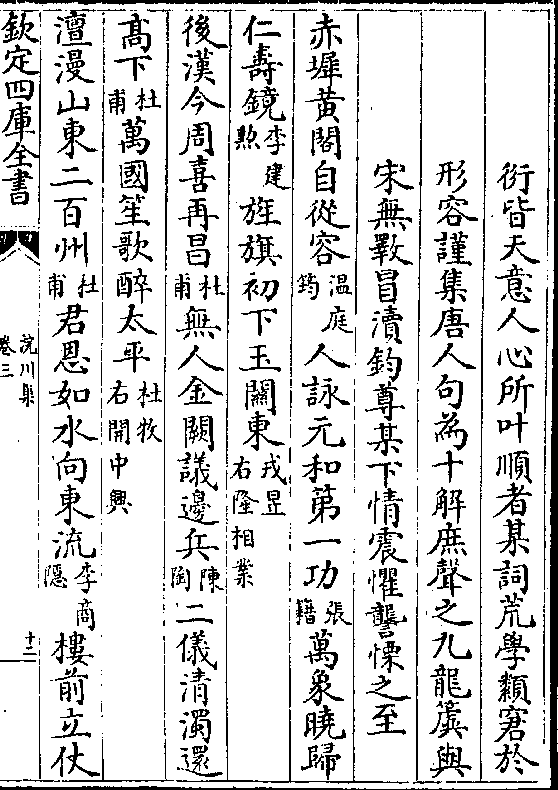 衍皆天意人心所叶順者某詞荒學纇窘於
形容謹集唐人句為十解庶聲之九龍簴與
宋無斁冒瀆鈞尊某下情震懼讋慄之至
赤墀黄閣自從容温庭筠人詠元和第一功張籍萬象曉歸
仁壽鏡李建勲旌旗初下玉關東戎昱右隆相業
後漢今周喜再昌杜甫無人金闕議邊兵陳陶二儀清濁還
髙下杜甫萬國笙歌醉太平杜牧右開中興
澶漫山東二百州杜甫君恩如水向東流李商隱樓前立仗
欽定四庫全書
洺川集
卷三
十二